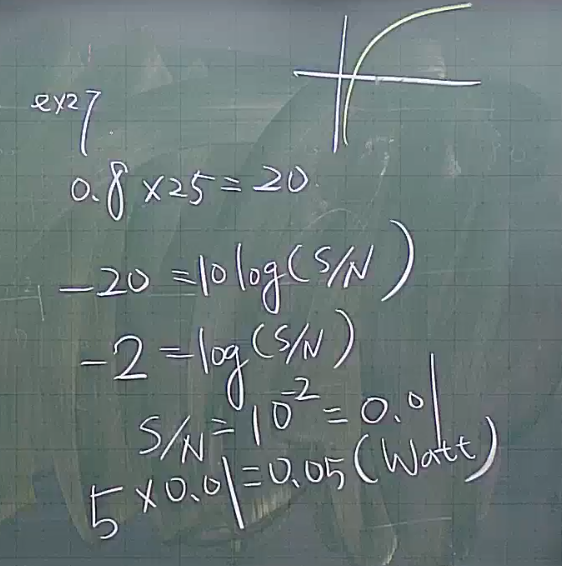 ex27.
0.8×25=20.
-20=10log(S/N)
-2=log(S/N)
S/N=10⁻²=0.01
5×0.01=0.05(Watt)